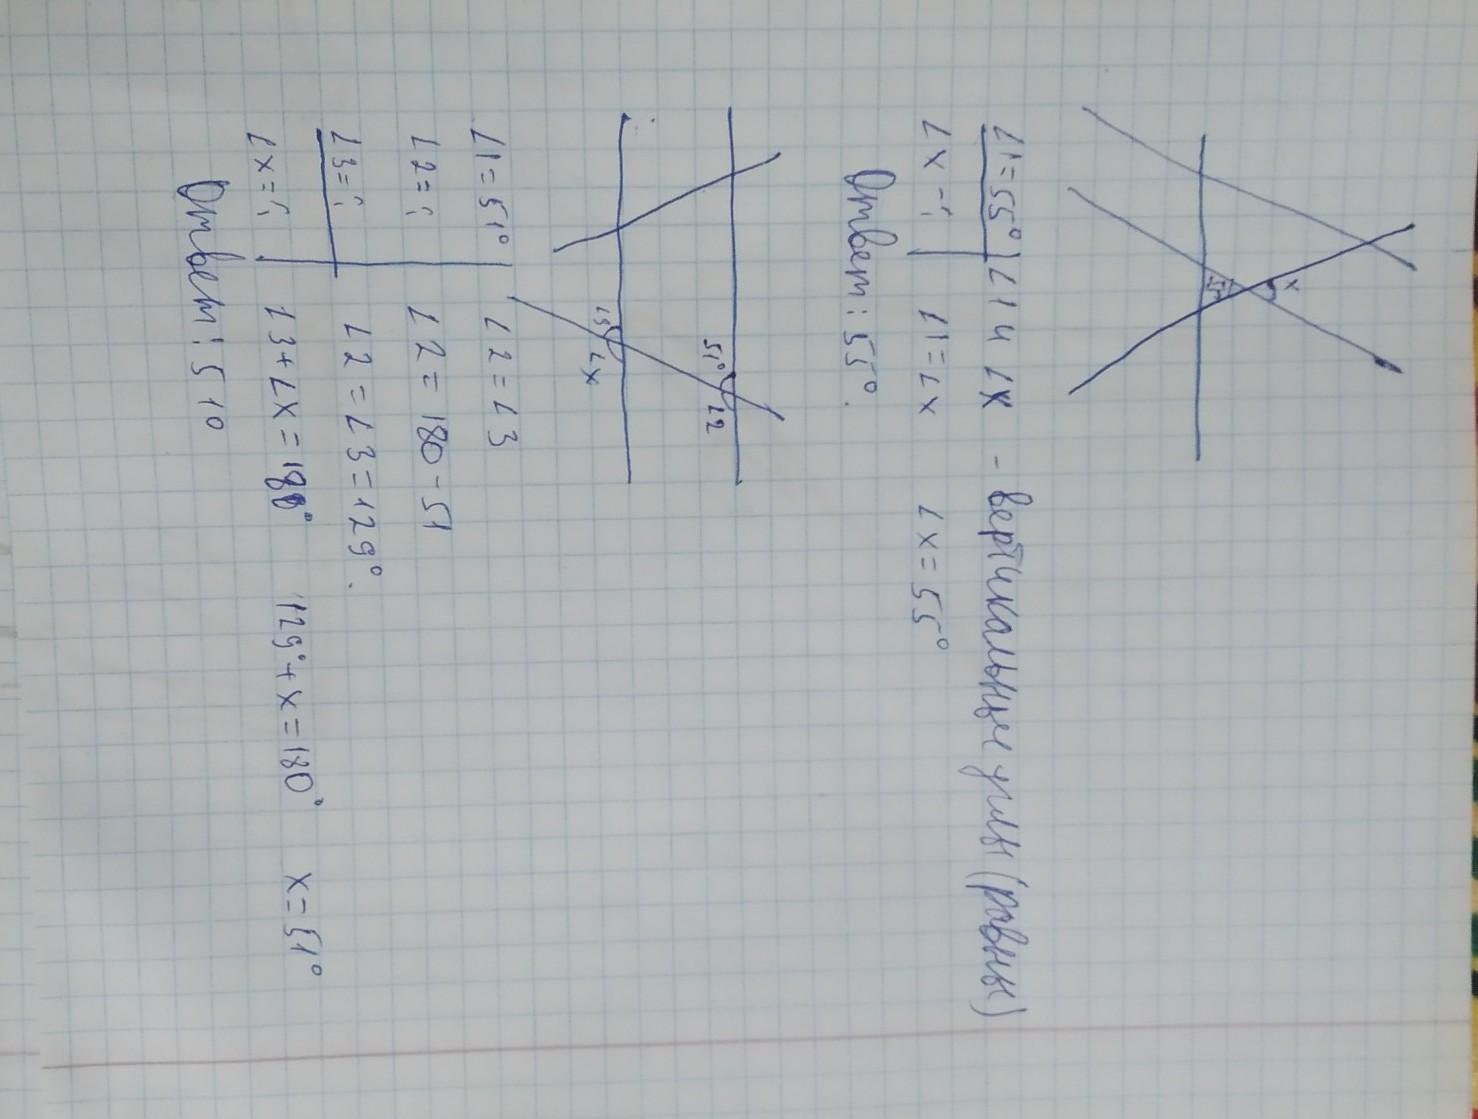 x
55
∠1=55° ∠1 и ∠x - вертикальные углы (равны)
∠x -? ∠1=∠x ∠x=55°
Ответ: 55°.
51° ∠2
∠3 ∠x
∠1=51° ∠2=∠3
∠2=? ∠2=180-51
∠3=? ∠2=∠3=129°.
∠x=? ∠3+∠x=180° 129°+x=180° x=51°
Ответ: 51°